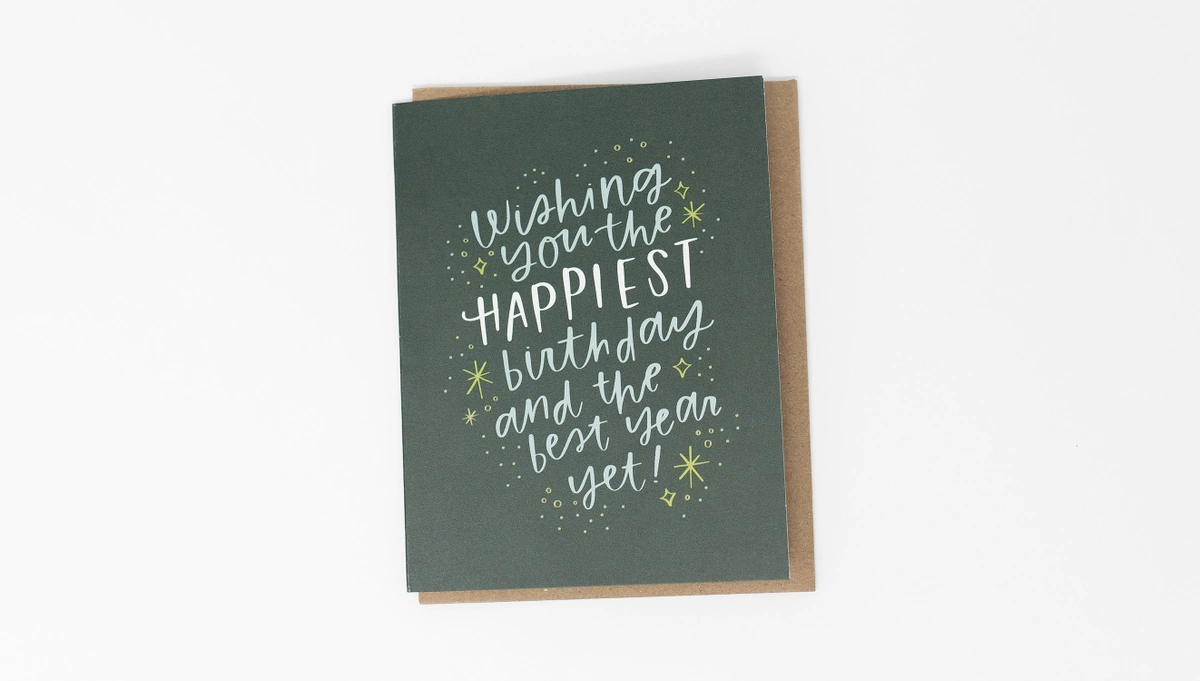 Wishing
you the
HAPPIEST
birthday
and the
best year
yet!